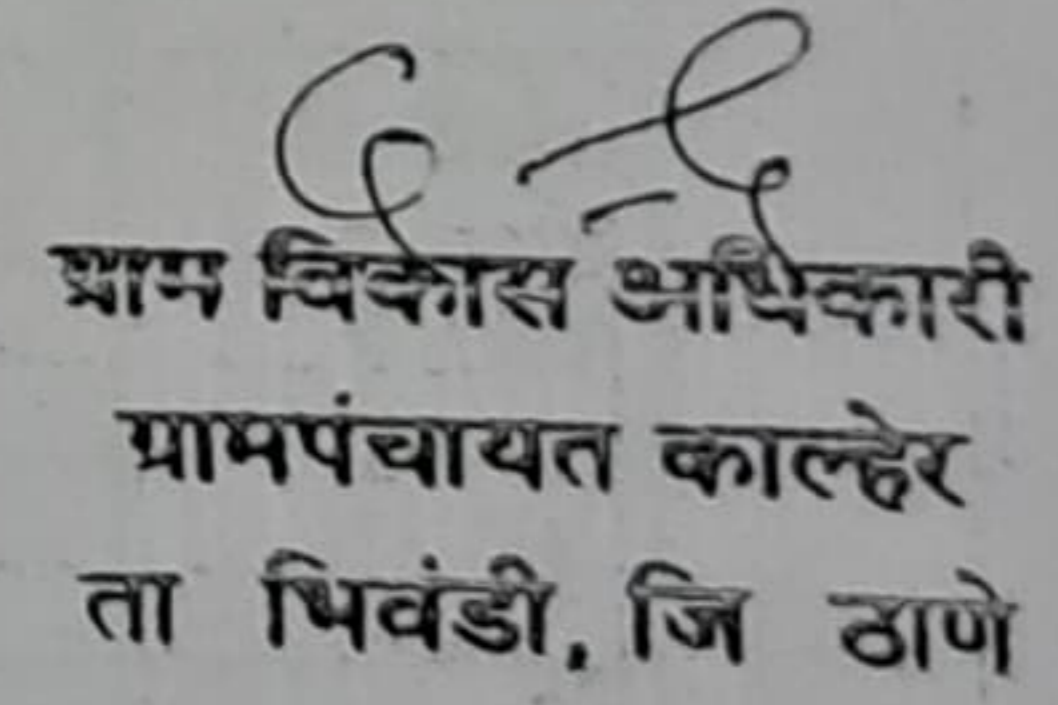 ग्राम विकास अधिकारी
ग्रामपंचायत काल्हेर
ता भिवंडी, जि ठाणे